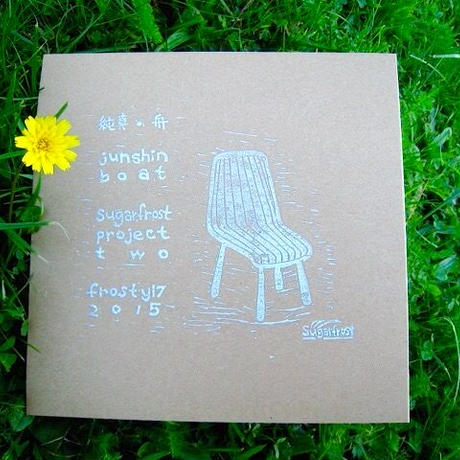 純真・舟
junshin
boat
sugarfrost
project
two
frosty17
2015
Sugarfrost